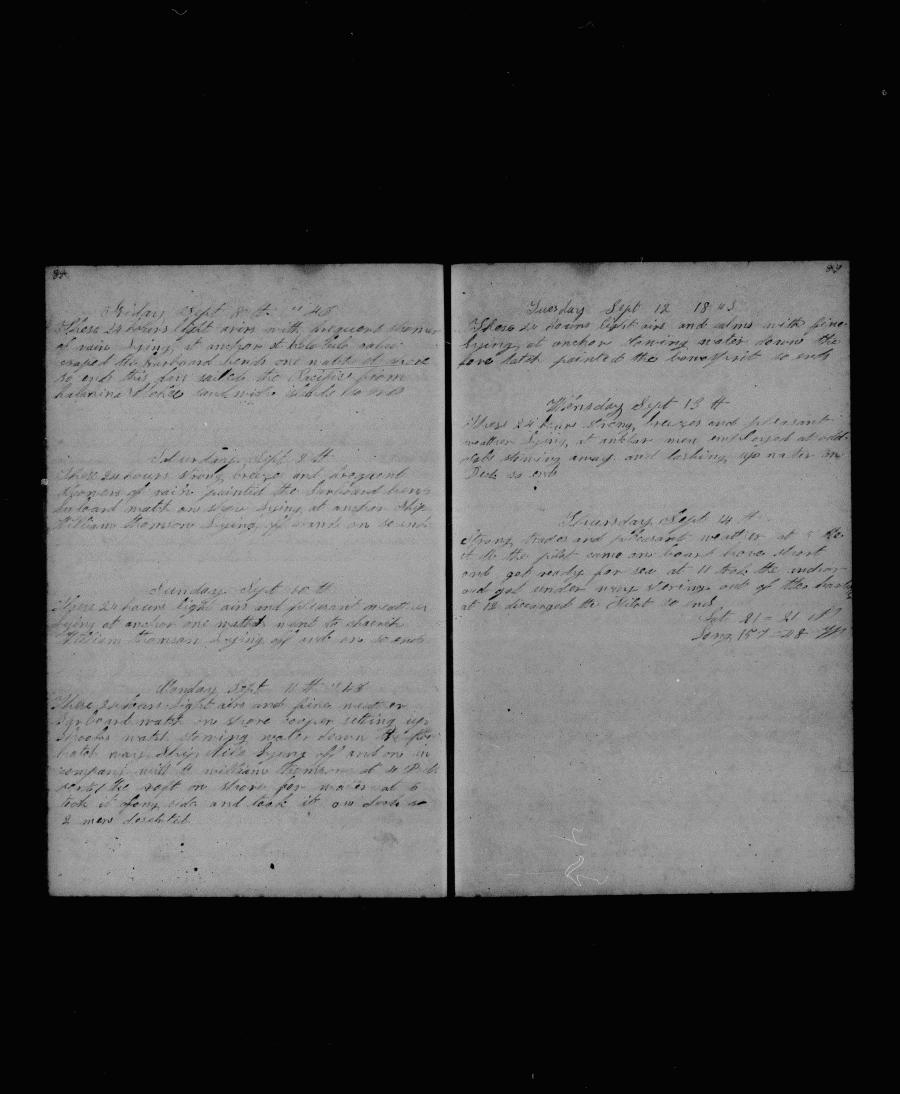 84
Friday Sept 8 th " 48
These 24 hours light airs with frequent shower
of rain Lying at anchor at
scraped the larboard bends one watch on shore
so ends this day sailed the Pacific from
Saturday Sept 9 th
These 24 hours strong breeze and frequent
showers of rain painted the larboard bens
larboard watch on shore Lying at anchor Ship
William thomson Lying off and on so ends
Sunday Sept 10 th
These 24 hours light airs and pleasant weather
Lying at anchor one watch went to church
William thomson Lying off and on so ends
Monday Sept 11 th " 48
These 24 hours light airs and fine weather
larboard watch on shore cooper setting up
shooks watch stowing water down the after
hatch way Ship Nile Lying off and on in
company with the william thomson at 4 P M
the raft on shore for water at 6
took it along side and took it on deck so
2 men deserted
85
Tuesday Sept 12 1848
These 24 hours light airs and calms with fine
Lying at anchor stowing water down the
fore hatch painted the bowsprit so ends
Wensday Sept 13 th
These 24 hours strong breezes and pleasant
weather Lying at ankor men employed at odd
jobs stowing away and lashing up water on
Deck so ends
Thursday Sept 14 th
Strong trades and pleasant weather at 5
A M the pilot came on board hove short
and got ready for sea at 11 took the anchor
and got under way stering out of the harbor
at 12 discarged the Pilot so ends
Lat 21 = 21
Long 157 = 48